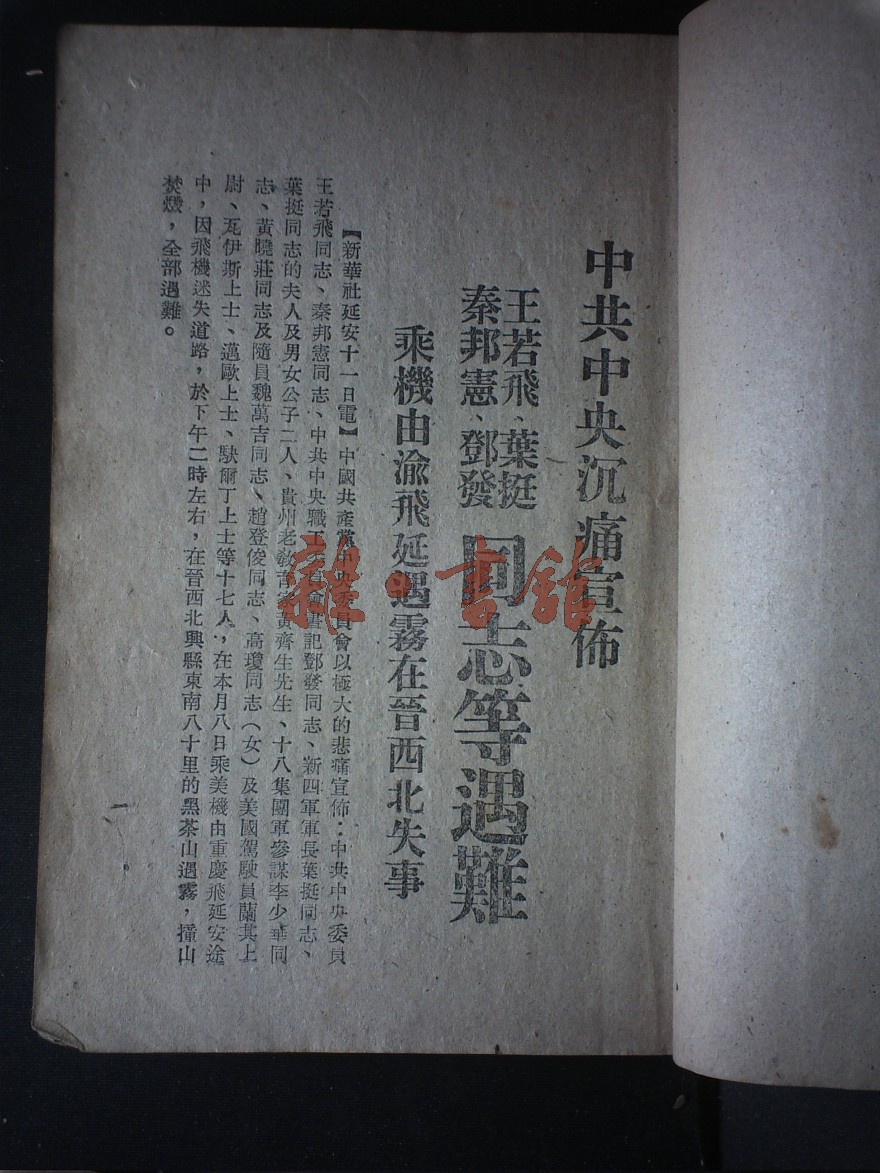 中共中央沉痛宣佈
王若飛、葉挺
秦邦憲、鄧發
同志等遇難
乘機由渝飛延遇霧在晉西北失事
【新華社延安十一日電】中國共產黨中央委員會以極大的悲痛宣佈：中共中央委員
王若飛同志、秦邦憲同志、中共中央職工委員會書記鄧發同志、新四軍軍長葉挺同志、
葉挺同志的夫人及男女公子二人、貴州老教育家黃齊生先生、十八集團軍參謀李少華同
志、黃曉莊同志及隨員魏萬吉同志、趙登俊同志、高瓊同志（女）及美國駕駛員蘭其上
尉、瓦伊斯上士、邁歐上士、駃爾丁上士等十七人，在本月八日乘美機由重慶飛延安途
中，因飛機迷失道路，於下午二時左右，在晉西北興縣東南八十里的黑茶山遇霧，撞山
焚燬，全部遇難。
一
雜·書館